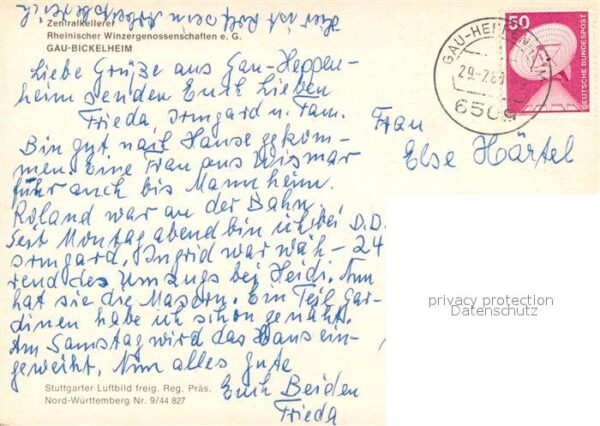 Zentralkellerei
Rheinischer Winzergenossenschaften e. G.
GAU-BICKELHEIM
Liebe Grüße aus Gau-Heppen-
heim senden Euch Lieben
Frieda Irmgard u. Fam.
Bin gut nach Hause gekom-
men. Eine Frau aus Wismar
fuhr auch bis Mannheim.
Roland war an der Bahn.
Seit Montag abend bin ich bei
Irmgard. Ingrid war wäh-
rend des Umzugs bei Heidi. Nun
hat sie die Masern. Ein Teil Gar-
dinen habe ich schon genäht.
Am Samstag wird das Haus ein-
geweiht. Nun alles Gute
Euch Beiden
Frieda
Stuttgarter Luftbild freig. Reg. Präs.
Nord-Württemberg Nr. 9/44 827
6509
50
DEUTSCHE BUNDESPOST
Frau
Else Härtel
D.D.
24
privacy protection
Datenschutz